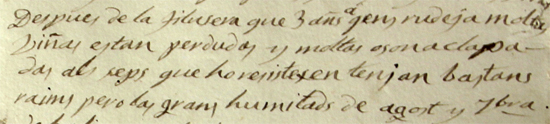 Despues de la filusera que 3 añs a gens rudeja moltas
viñas estan perdudas y moltas o son aclapa-
das als seps que ho resistexen tenian bastans
raims pero las grans humitads de agost y 7bra.